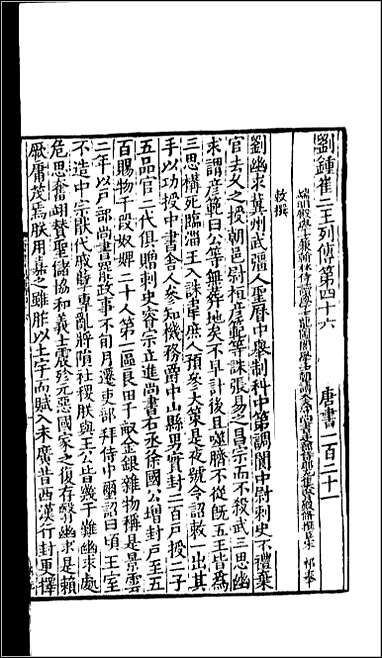 劉鍾崔二王列傳第四十六　唐書一百二十一
端明殿學士兼翰林侍讀學士龍圖閣學士朝請大夫守尚書吏部侍郎充集賢殿修撰臣宋祁奉
敕撰
劉幽求冀州武彊人聖曆中舉制科中第調閬中尉刺史不禮棄
官去久之授朝邑尉桓彥範等誅張易之昌宗而不殺武三思幽
求謂彥範曰公等無葬地矣不早計後且噬臍不從既五王皆爲
三思構死臨淄王入誅韋庶人預參大策是夜號令詔敕一出其
手以功授中書舍人參知機務爵中山縣男實封二百戶授二子
五品官二代俱贈刺史睿宗立進尚書右丞徐國公增封戶至五
百賜物千段奴婢二十人第一區良田千畝金銀雜物稱是景雲
二年以戶部尚書罷政事不旬月遷吏部拜侍中璽詔曰頃王室
不造中宗厭代戚孽專亂將隕社稷朕與王公皆幾于難幽求處
危思奮翊贊聖儲協和義士震殄元惡國家之復存繄幽求是賴
厥庸茂焉朕用嘉之雖胙以土宇而賦入未廣昔西漢行封更擇